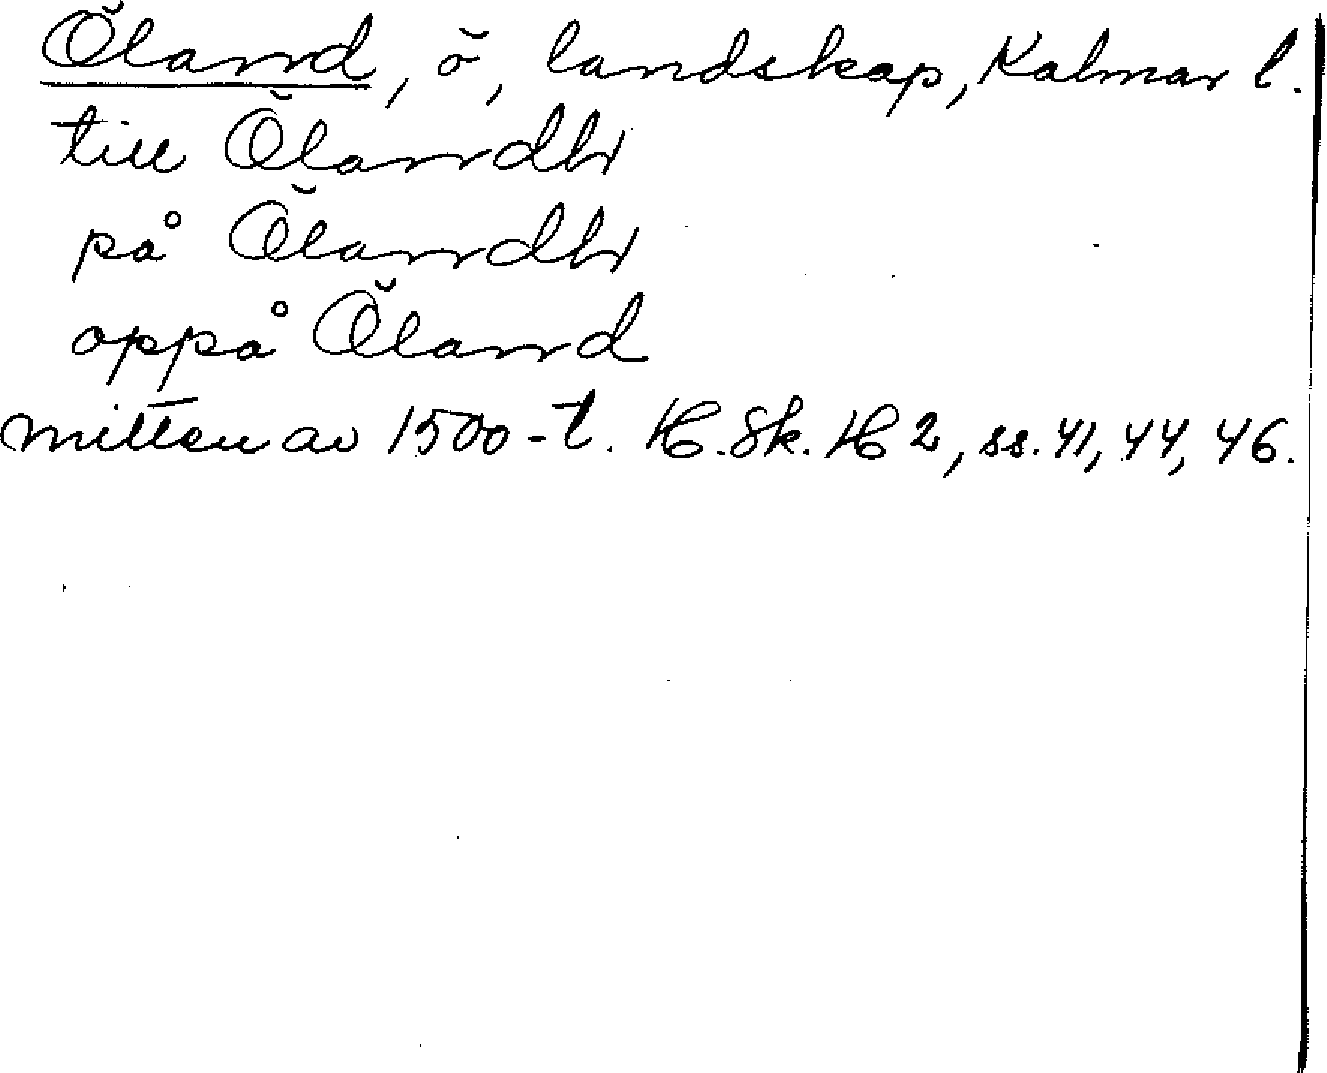 Öland, ö, landskap, Kalmar l.
till Ölandh
på Ölandh
oppå Öland
mitten av 1500-t. H.Sk.H 2, ss. 41, 44, 46.